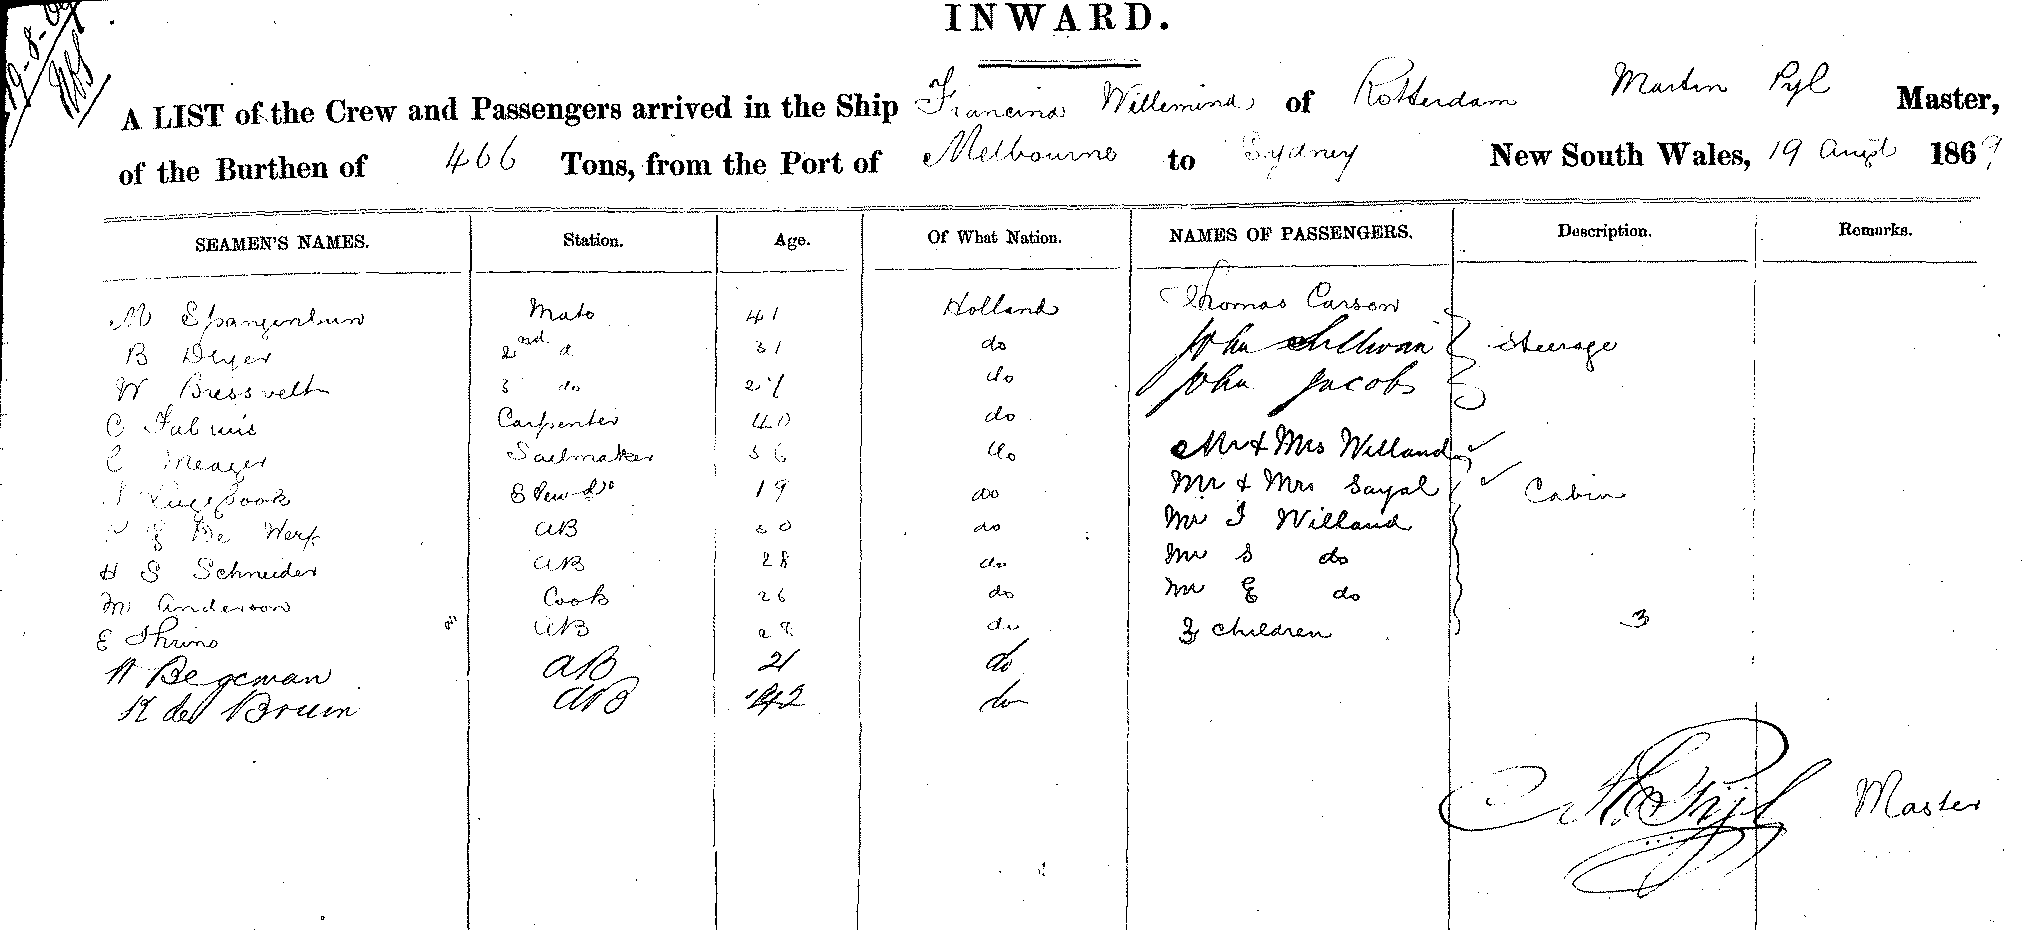 19-8-69
INWARD.
A LIST of the Crew and Passengers arrived in the Ship Francina Willemina of Rotterdam Martin Pyl Master,
of the Burthen of 466 Tons, from the Port of Melbourne to Sydney New South Wales, 19 Augt 1869
SEAMEN'S NAMES. Station. Age. Of What Nation. NAMES OF PASSENGERS. Description. Remarks.
M Mate 41 Holland Thomas Carson
B Dryer 2nd d 31 do John Sullivan Steerage
W Bressvelt 3 do 27 do John Jacobs
C Carpenter 40 do
C Meager Sailmaker 36 do Mr & Mrs Willand
Stewd 19 do Mr & Mrs Sayal Cabin
De Werf AB 30 do Mr I Willand
H S Schneider AB 28 do Mr S do
M Anderson Cook 26 do Mr E do
E AB 28 do 3 children 3
H Begeman AB 21 do
K de Bruin AB 42 do
M. Pijl Master